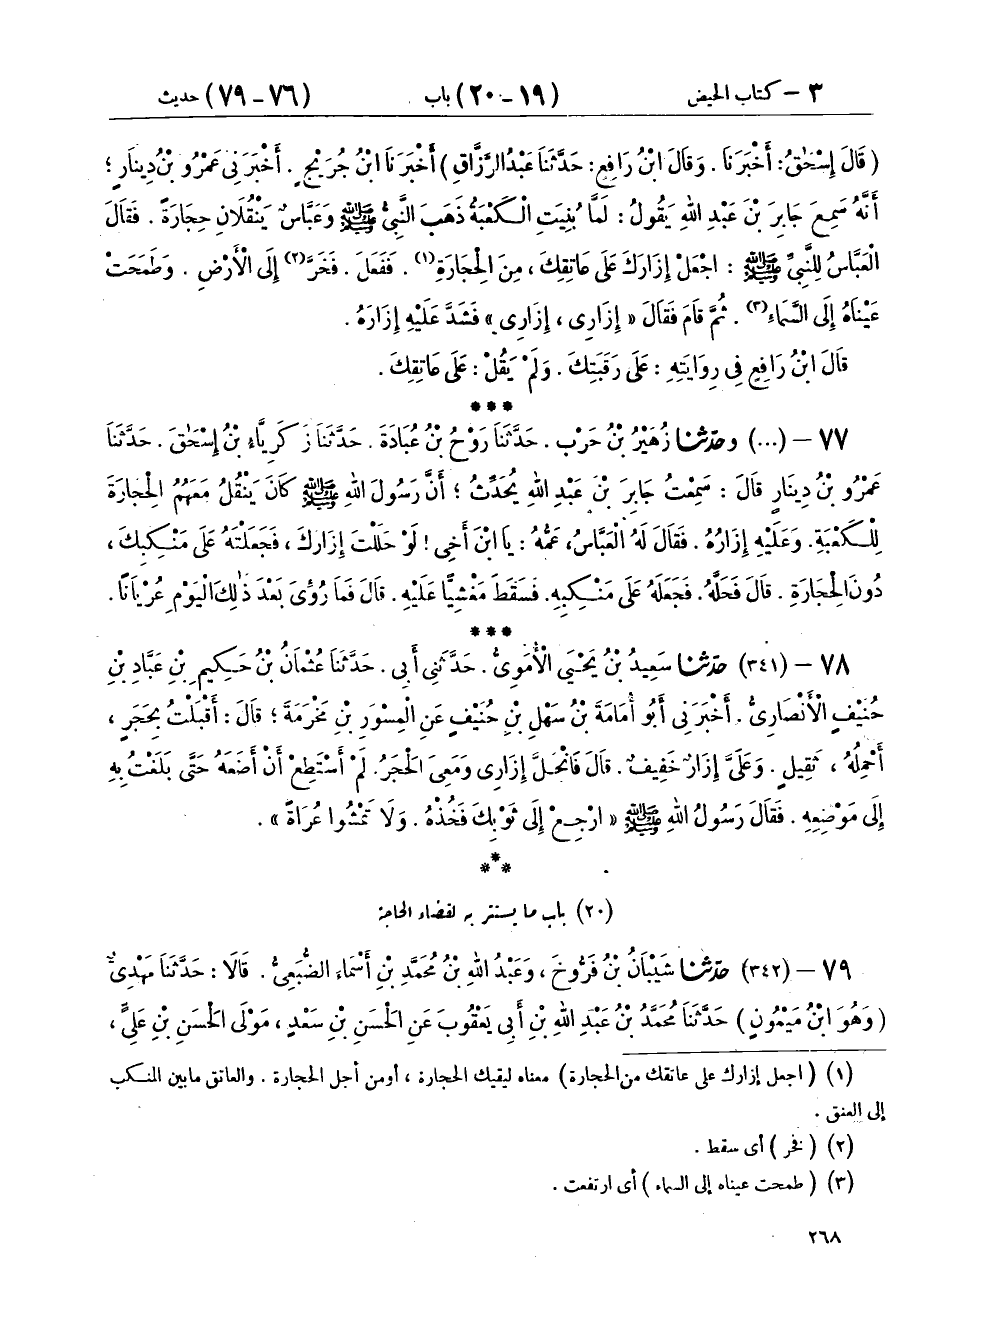 ٣ – كتاب الحيض (١٩ – ٢٠) باب (٧٦ – ٧٩) حديث
( قَالَ إِسْحَٰقُ: أَخْبَرَنَا . وَقَالَ ابْنُ رَافِعٍ: حَدَّثَنَا عَبْدُ الرَّزَّاقِ ) أَخْبَرَنَا ابْنُ جُرَيْجٍ . أَخْبَرَنِى عَمْرُو بْنُ دِينَارٍ ؛
أَنَّهُ سَمِعَ جَابِرَ بْنَ عَبْدِ اللهِ يَقُولُ : لَمَّا بُنِيَتِ الْكَعْبَةُ ذَهَبَ النَّبِىُّ ﷺ وَعَبَّاسٌ يَنْقُلَانِ حِجَارَةً . فَقَالَ
الْعَبَّاسُ لِلنَّبِىِّ ﷺ : اجْعَلْ إِزَارَكَ عَلَى عَاتِقِكَ ، مِنَ الْحِجَارَةِ(١) . فَفَعَلَ . فَخَرَّ(٢) إِلَى الْأَرْضِ . وَطَمَحَتْ
عَيْنَاهُ إِلَى السَّمَاءِ(٣) . ثُمَّ قَامَ فَقَالَ « إِزَارِى ، إِزَارِى » فَشَدَّ عَلَيْهِ إِزَارَهُ .
قَالَ ابْنُ رَافِعٍ فِى رِوَايَتِهِ : عَلَى رَقَبَتِكَ . وَلَمْ يَقُلْ : عَلَى عَاتِقِكَ .
***
٧٧ – (...) وحَدَّثَنَا زُهَيْرُ بْنُ حَرْبٍ . حَدَّثَنَا رَوْحُ بْنُ عُبَادَةَ . حَدَّثَنَا زَكَرِيَّاءُ بْنُ إِسْحَٰقَ . حَدَّثَنَا
عَمْرُو بْنُ دِينَارٍ قَالَ : سَمِعْتُ جَابِرَ بْنَ عَبْدِ اللهِ يُحَدِّثُ ؛ أَنَّ رَسُولَ اللهِ ﷺ كَانَ يَنْقُلُ مَعَهُمُ الْحِجَارَةَ
لِلْكَعْبَةِ. وَعَلَيْهِ إِزَارُهُ . فَقَالَ لَهُ الْعَبَّاسُ، عَمُّهُ : يَا ابْنَ أَخِى ! لَوْ حَلَلْتَ إِزَارَكَ ، فَجَعَلْتَهُ عَلَى مَنْكِبِكَ ،
دُونَ الْحِجَارَةِ . قَالَ فَحَلَّهُ. فَجَعَلَهُ عَلَى مَنْكِبِهِ. فَسَقَطَ مَغْشِيًّا عَلَيْهِ. قَالَ فَمَا رُؤِىَ بَعْدَ ذَٰلِكَ الْيَوْمِ عُرْيَانًا .
***
٧٨ – (٣٤١) حَدَّثَنَا سَعِيدُ بْنُ يَحْيَىَ الْأُمَوِىُّ . حَدَّثَنِى أَبِى . حَدَّثَنَا عُثْمَانُ بْنُ حَكِيمِ بْنِ عَبَّادِ بْنِ
حُنَيْفٍ الْأَنْصَارِىُّ . أَخْبَرَنِى أَبُو أُمَامَةَ بْنُ سَهْلِ بْنِ حُنَيْفٍ عَنِ الْمِسْوَرِ بْنِ مَخْرَمَةَ ؛ قَالَ : أَقْبَلْتُ بِحَجَرٍ ،
أَحْمِلُهُ ، ثَقِيلٍ . وَعَلَىَّ إِزَارٌ خَفِيفٌ . قَالَ فَانْحَلَّ إِزَارِى وَمَعِىَ الْحَجَرُ. لَمْ أَسْتَطِعْ أَنْ أَضَعَهُ حَتَّى بَلَغْتُ بِهِ
إِلَى مَوْضِعِهِ . فَقَالَ رَسُولُ اللهِ ﷺ « ارْجِعْ إِلَى ثَوْبِكَ فَخُذْهُ . وَلَا تَمْشُوا عُرَاةً » .
***
(٢٠) باب ما يستتر به لقضاء الحاجة
٧٩ – (٣٤٢) حَدَّثَنَا شَيْبَانُ بْنُ فَرُّوخَ ، وَعَبْدُ اللهِ بْنُ مُحَمَّدِ بْنِ أَسْمَاءَ الضُّبَعِىُّ . قَالَا : حَدَّثَنَا مَهْدِىٌّ
( وَهُوَ ابْنُ مَيْمُونٍ ) حَدَّثَنَا مُحَمَّدُ بْنُ عَبْدِ اللهِ بْنِ أَبِى يَعْقُوبَ عَنِ الْحَسَنِ بْنِ سَعْدٍ ، مَوْلَى الْحَسَنِ بْنِ عَلِىٍّ ،
(١) ( اجعل إزارك على عاتقك من الحجارة ) معناه ليقيك الحجارة ، أو من أجل الحجارة . والعاتق ما بين المنكب
إلى العنق .
(٢) ( فخر ) أى سقط .
(٣) ( طمحت عيناه إلى السماء ) أى ارتفعت .
٢٦٨